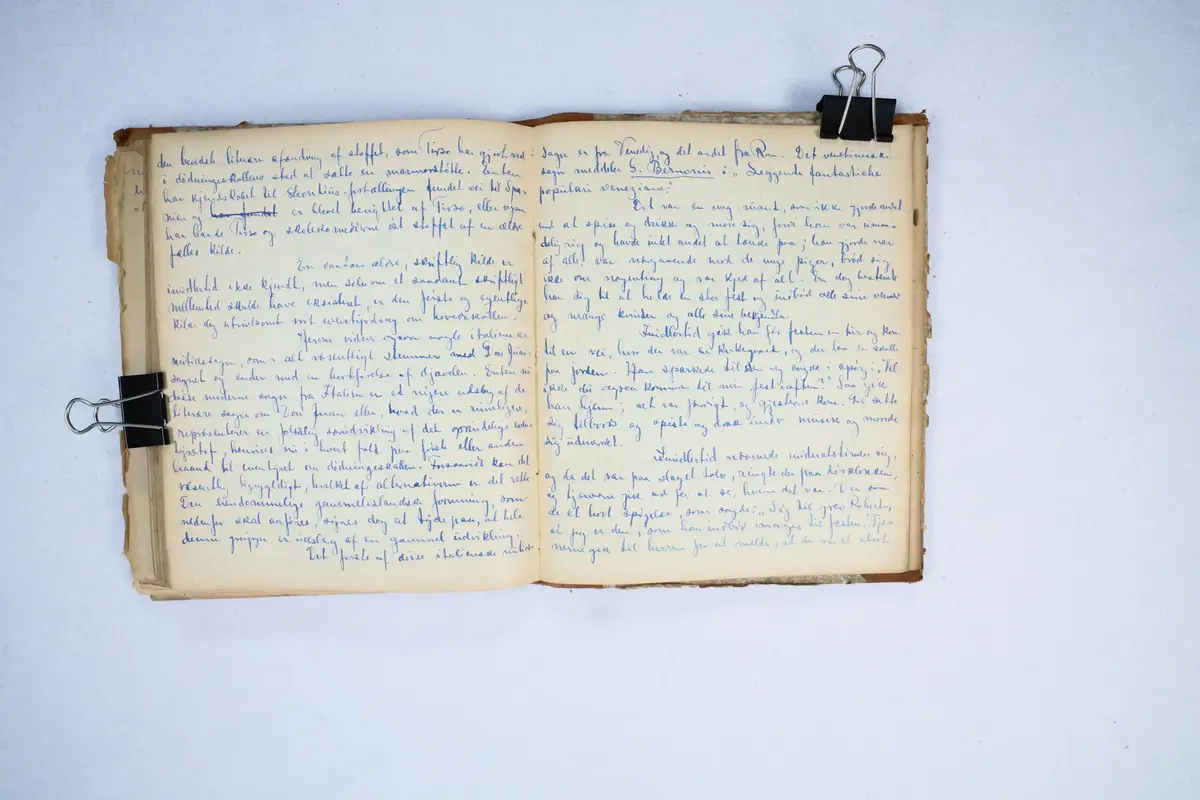 den literære af stoffet, som Tirso har gjort ved
i dødningeskallens sted at sætte en marmorstøtte. Enten
har kjendskabet til Leontius-fortællingen fundet vei til Spa-
nien og er blevet benyttet af Tirso, eller ogsaa
har baade Tirso og øst stoffet af en ældre
fælles kilde.
En saadan ældre, skriftlig kilde er
imidlertid ikke kjendt, men selv om et saadant skriftligt
mellemled skulde have eksisteret, er den første og egentlige
kilde dog utvivlsomt vort eventyrdrag om hovedskallen.
Herom vidner ogsaa nogle italienske
nutidssagn, som i alt væsentligt stemmer med Don Juan-
sagnet og ender med en bortførelse af djævlen. Enten nu
disse moderne sagn fra Italien er et nyere udslag af de
literære sagn om Don Juan eller, hvad der er rimeligere,
repræsenterer en folkelig af det oprindelige
henvises vi i hvert fald paa første eller anden
haand til eventyret om dødningeskallen. Forsaavidt kan det
være ligegyldigt, hvilket af alternativerne er det rette.
Den eiendommelige gammelislandske formning, som
nedenfor skal anføres, synes dog at tyde paa, at hele
denne gruppe er udslag af en gammel udvikling.
Det første af disse italienske nutids-
sagn er fra Venedig og det andet fra Rom. Det venetianske
sagn meddeler G. Bernoni i „Leggende fantastiche
popolari veneziane":
Det var en ung mand, som ikke gjorde andet
end at spise og drikke og more sig, fordi han var
rig og havde intet andet at tænke paa; han gjorde nar
af alle, var nærgaaende mod de unge piger, brød sig
ikke om nogenting og var kjed af alt. En dag bestemte
han sig til at holde en stor fest og indbød alle sine venner
og mange kvinder og alle sine bekjendte.
Imidlertid gik han før festen en tur og kom
til en vei, hvor der var en kirkegaard, og der laa en skalle
paa jorden. Han sparkede til den og sagde i spøg: „Vil
ikke du ogsaa komme til min fest iaften?" Saa gik
han hjem; alt var færdigt, og gjesterne kom. De satte
sig tilbords og spiste og drak under musik og morede
sig udmerket.
Imidlertid nærmede midnatstimen sig,
og da det var paa slaget tolv, ringte der paa dørklokken,
og tjenerne gik ud for at se, hvem det var. Der saa
de et stort spøgelse, som sagde: „Sig til grev Robert,
at jeg er den, som han indbød imorges til festen." Tje-
nerne gik til herren for at melde, at der var et stort